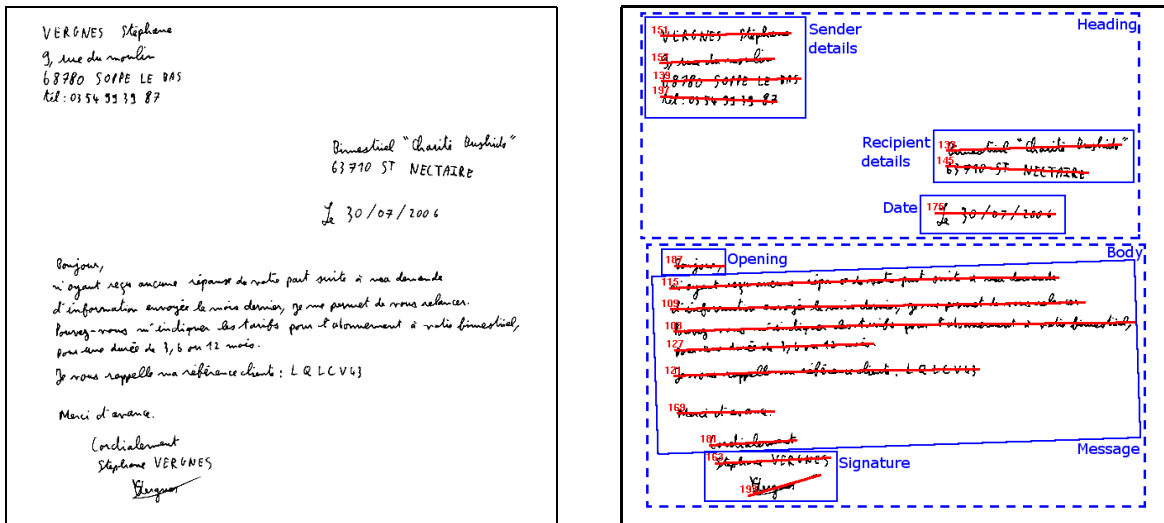 VERGNES Stéphane
9, rue du moulin
68780 SOPPE LE BAS
tél: 03 54 99 39 87
Bimestriel "Charité Bushido"
63710 ST NECTAIRE
Le 30/07/2006
Bonjour,
n'ayant reçu aucune réponse de votre part suite à ma demande
d'information envoyée le mois dernier, je me permet de vous relancer.
Pouvez-vous m'indiquer les tarifs pour l'abonnement à votre bimestriel,
pour une durée de 3, 6 ou 12 mois.
Je vous rappelle ma référence client: LQLCV43
Merci d'avance.
Cordialement
Stéphane VERGNES
Vergnes
Heading
Sender details
151 VERGNES Stéphane
157 9, rue du moulin
139 68780 SOPPE LE BAS
197 tél: 03 54 99 39 87
Recipient details
133 Bimestriel "Charité Bushido"
145 63710 ST NECTAIRE
Date
175 Le 30/07/2006
Body
Opening
187 Bonjour,
115 n'ayant reçu aucune réponse de votre part suite à ma demande
109 d'information envoyée le mois dernier, je me permet de vous relancer
103 Pouvez-vous m'indiquer les tarifs pour l'abonnement à votre bimestriel,
127 pour une durée de 3, 6 ou 12 mois.
121 Je vous rappelle ma référence client: LQLCV43
169 Merci d'avance.
181 Cordialement
Message
163 Stéphane VERGNES
Signature
193 Vergnes